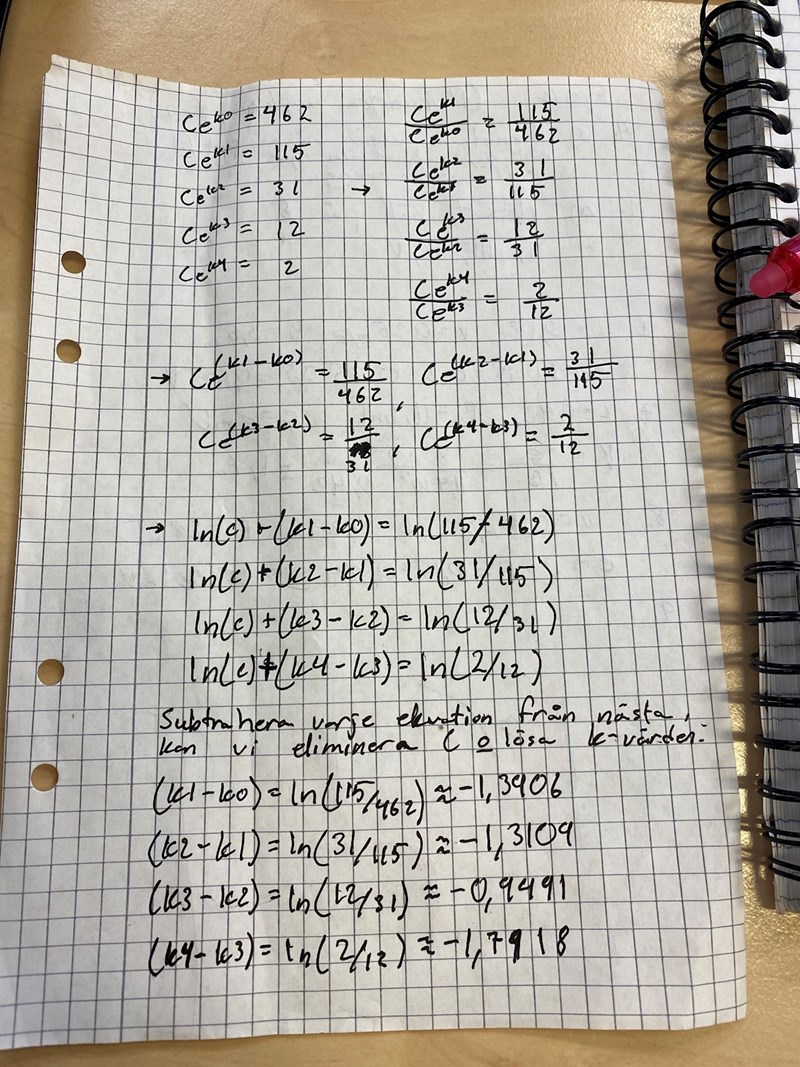 Ce^{k0} = 462
Ce^{k1} = 115
Ce^{k2} = 31 →
Ce^{k3} = 12
Ce^{k4} = 2
Ce^{k1}/Ce^{k0} = 115/462
Ce^{k2}/Ce^{k1} = 31/115
Ce^{k3}/Ce^{k2} = 12/31
Ce^{k4}/Ce^{k3} = 2/12
→ Ce^{(k1-k0)} = 115/462, Ce^{(k2-k1)} = 31/115
Ce^{(k3-k2)} = 12/31, Ce^{(k4-k3)} = 2/12
→ ln(c) + (k1-k0) = ln(115/462)
ln(c) + (k2-k1) = ln(31/115)
ln(c) + (k3-k2) = ln(12/31)
ln(c) + (k4-k3) = ln(2/12)
Subtrahera varje ekvation från nästa,
kan vi eliminera C o lösa k-värden:
(k1-k0) = ln(115/462) ≈ -1,3906
(k2-k1) = ln(31/115) ≈ -1,3109
(k3-k2) = ln(12/31) ≈ -0,9491
(k4-k3) = ln(2/12) ≈ -1,7918